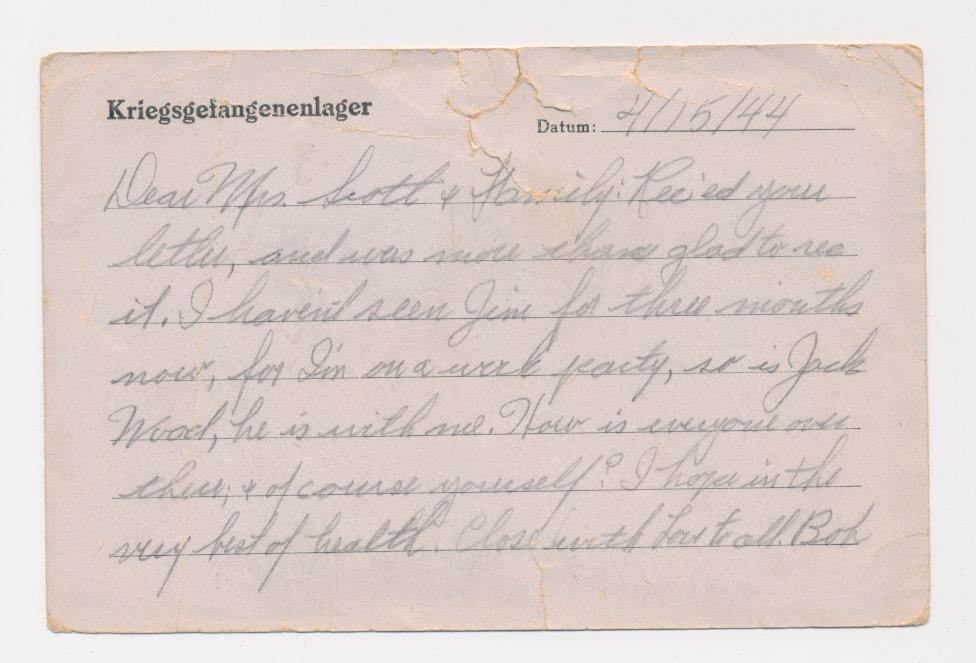 Kriegsgefangenenlager
Datum: 4/15/44
Dear Mrs. Scott & Family: Rec'ed your
letter, and was more than glad to rec
it. I haven't seen Jim for three months
now, for I'm on a work party, so is Jack
Wood, he is with me. How is everyone over
there, & of course yourself? I hope in the
very best of health. Close with Love to all. Bob